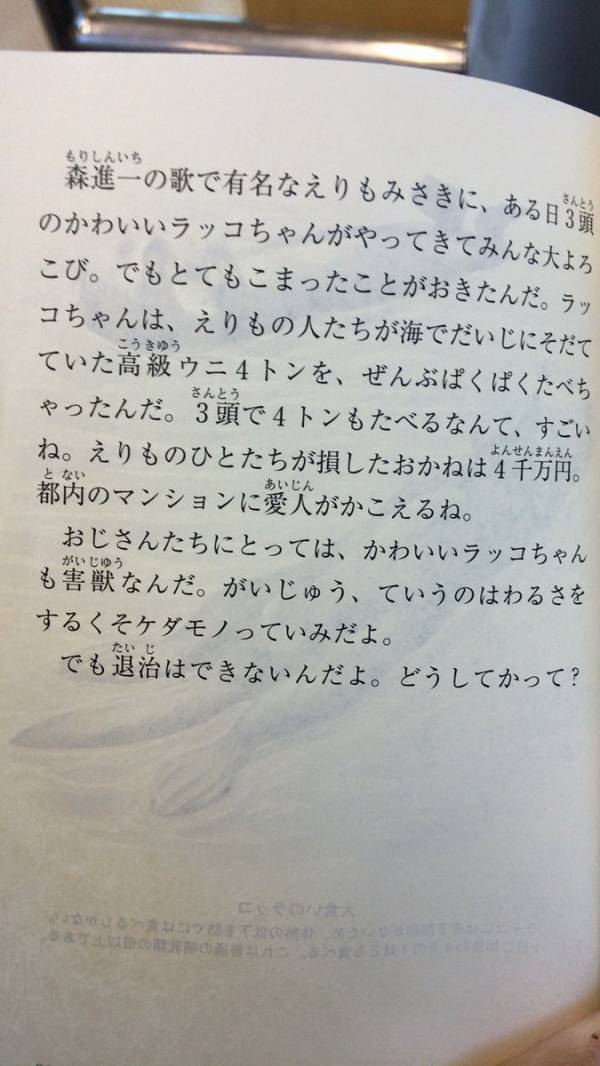 もりしんいち
森進一の歌で有名なえりもみさきに、ある日3頭
さんとう
のかわいいラッコちゃんがやってきてみんな大よろ
こび。でもとてもこまったことがおきたんだ。ラッ
コちゃんは、えりもの人たちが海でだいじにそだて
こうきゆう
ていた高級ウニ4トンを、ぜんぶぱくぱくたべち
さんとう
ゃったんだ。3頭で4トンもたべるなんて、すごい
よんせんまんえん
ね。えりものひとたちが損したおかねは4千万円。
とない あいじん
都内のマンションに愛人がかこえるね。
おじさんたちにとっては、かわいいラッコちゃん
がいじゆう
も害獣なんだ。がいじゅう、ていうのはわるさを
するくそケダモノっていみだよ。
たいじ
でも退治はできないんだよ。どうしてかって?
大食いのラッコ